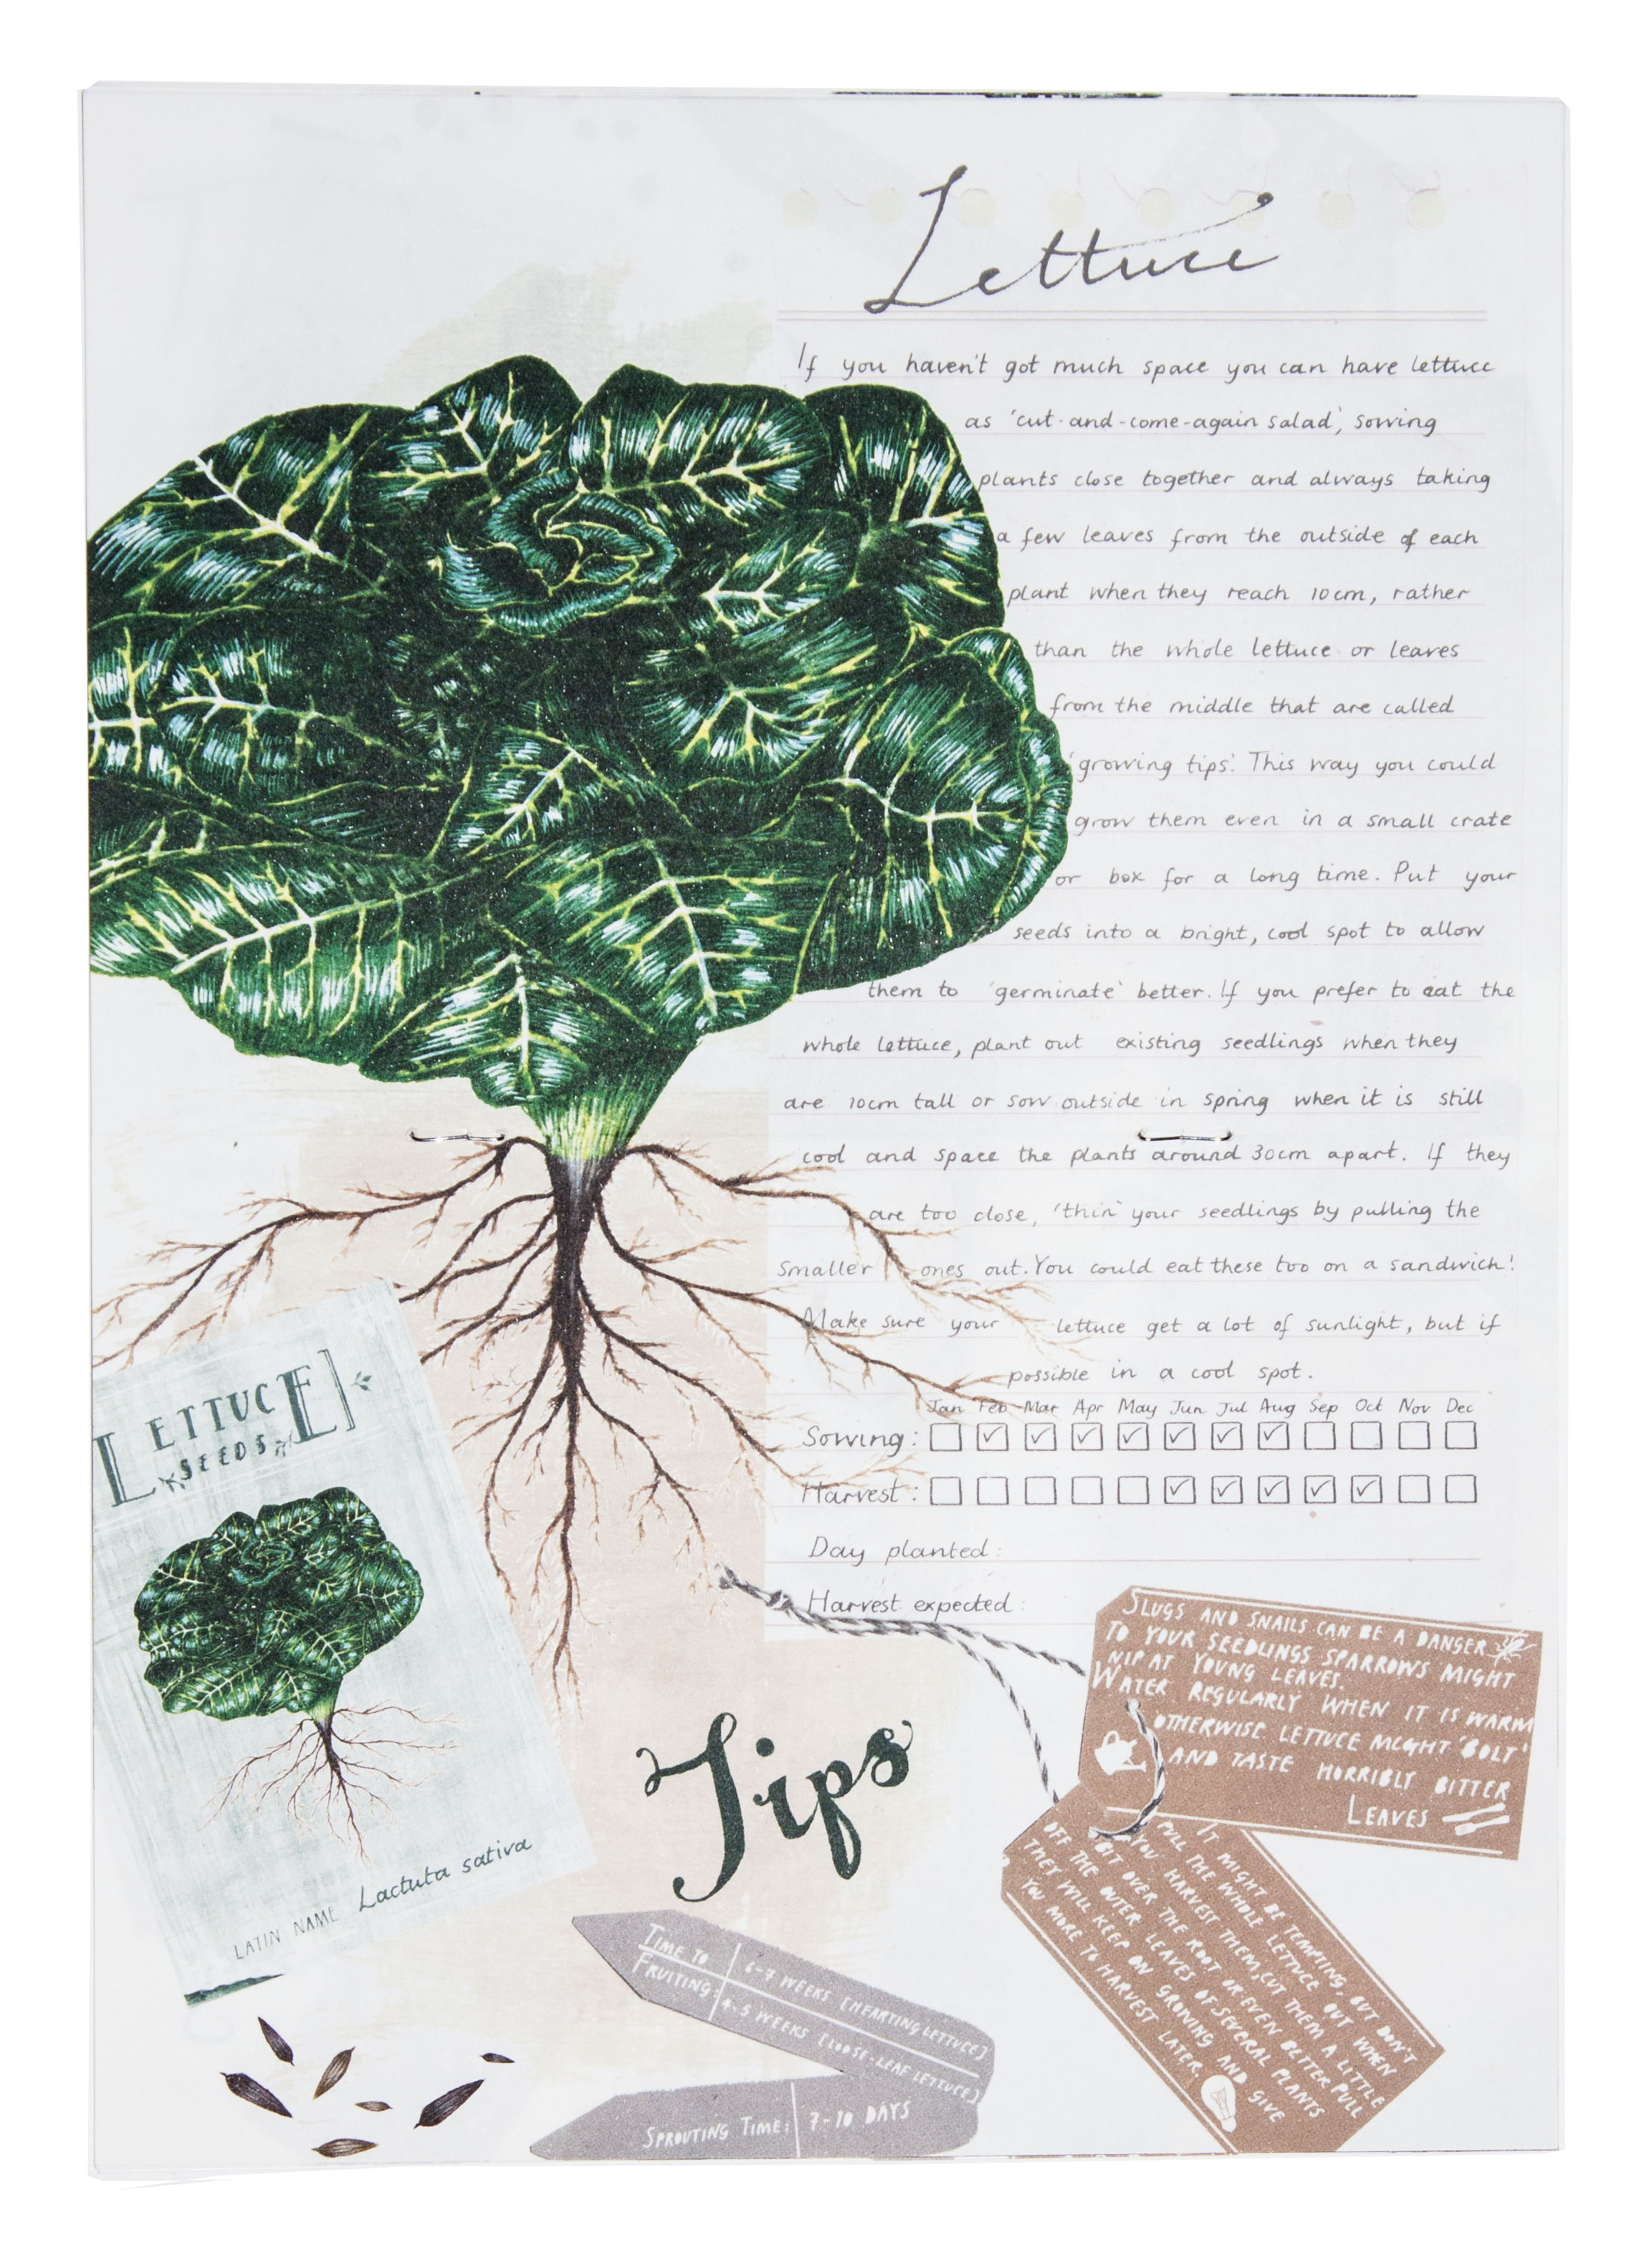 Lettuce
If you haven't got much space you can have lettuce
as 'cut-and-come-again salad', sowing
plants close together and always taking
a few leaves from the outside of each
plant when they reach 10cm, rather
than the whole lettuce or leaves
from the middle that are called
'growing tips'. This way you could
grow them even in a small crate
or box for a long time. Put your
seeds into a bright, cool spot to allow
them to 'germinate' better. If you prefer to eat the
whole lettuce, plant out existing seedlings when they
are 10cm tall or sow outside in spring when it is still
cool and space the plants around 30cm apart. If they
are too close, 'thin' your seedlings by pulling the
smaller ones out. You could eat these too on a sandwich!
Make sure your lettuce get a lot of sunlight, but if
possible in a cool spot.
Jan Feb Mar Apr May Jun Jul Aug Sep Oct Nov Dec
Sowing:
Harvest:
Day planted:
Harvest expected:
LETTUCE
SEEDS
LATIN NAME Lactuta sativa
Tips
SLUGS AND SNAILS CAN BE A DANGER
TO YOUR SEEDLINGS SPARROWS MIGHT
NIP AT YOUNG LEAVES.
WATER REGULARLY WHEN IT IS WARM
OTHERWISE LETTUCE MIGHT 'BOLT'
AND TASTE HORRIBLY BITTER
LEAVES
IT MIGHT BE TEMPTING, BUT DON'T
PULL THE WHOLE LETTUCE OUT WHEN
YOU HARVEST THEM, CUT THEM A LITTLE
BIT OVER THE ROOT OR EVEN BETTER PULL
OFF THE OUTER LEAVES OF SEVERAL PLANTS
THEY WILL KEEP ON GROWING AND GIVE
YOU MORE TO HARVEST LATER.
TIME TO
FRUITING:
6-7 WEEKS [HEARTING LETTUCE]
4-5 WEEKS [LOOSE-LEAF LETTUCE]
SPROUTING TIME: 7-10 DAYS